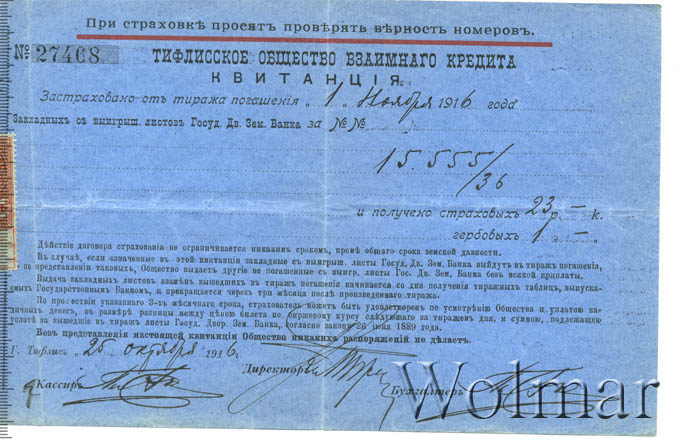 При страховкѣ просятъ провѣрять вѣрность номеровъ.
№ 27468 ТИФЛИССКОЕ ОБЩЕСТВО ВЗАИМНАГО КРЕДИТА
КВИТАНЦІЯ
Застраховано отъ тиража погашенія „ 1 „ Ноября 1916 года
Закладныхъ съ выигрыш. листовъ Госуд. Дв. Зем. Банка за №№
15.555/36
и получено страховыхъ 23 р. — к.
гербовыхъ 1 „ —
Дѣйствіе договора страхованія не ограничивается никакимъ срокомъ, кромѣ общаго срока земской давности.
Въ случаѣ, если означенные въ этой квитанціи закладные съ выигрыш. листы Госуд. Дв. Зем. Банка выйдутъ въ тиражъ погашенія,
по представленіи таковыхъ, Общество выдаетъ другіе не погашенные съ выигр. листы Гос. Дв. Зем. Банка безъ всякой приплаты.
Выдача закладныхъ листовъ взамѣнъ вышедшихъ въ тиражъ погашенія начинается со дня полученія тиражныхъ таблицъ, выпуска-
мыхъ Государственнымъ Банкомъ, и прекращается черезъ три мѣсяца послѣ произведеннаго тиража.
По прошествіи указаннаго 3-хъ мѣсячнаго срока, страхователь можетъ быть удовлетворенъ по усмотрѣнію Общества и уплатою на-
личныхъ денегъ, въ размѣрѣ разницы между цѣною билета по биржевому курсу слѣдующаго за тиражемъ дня, и суммою, подлежащею
уплатѣ за вышедшіе въ тиражъ листы Госуд. Двор. Зем. Банка, согласно закону 26 іюня 1889 года.
Безъ представленія настоящей квитанціи Общество никакихъ распоряженій не дѣлаетъ.
Г. Тифлисъ „ 25 „ октября 1916 г.
Директоръ
Кассиръ Бухгалтеръ
Wolmar